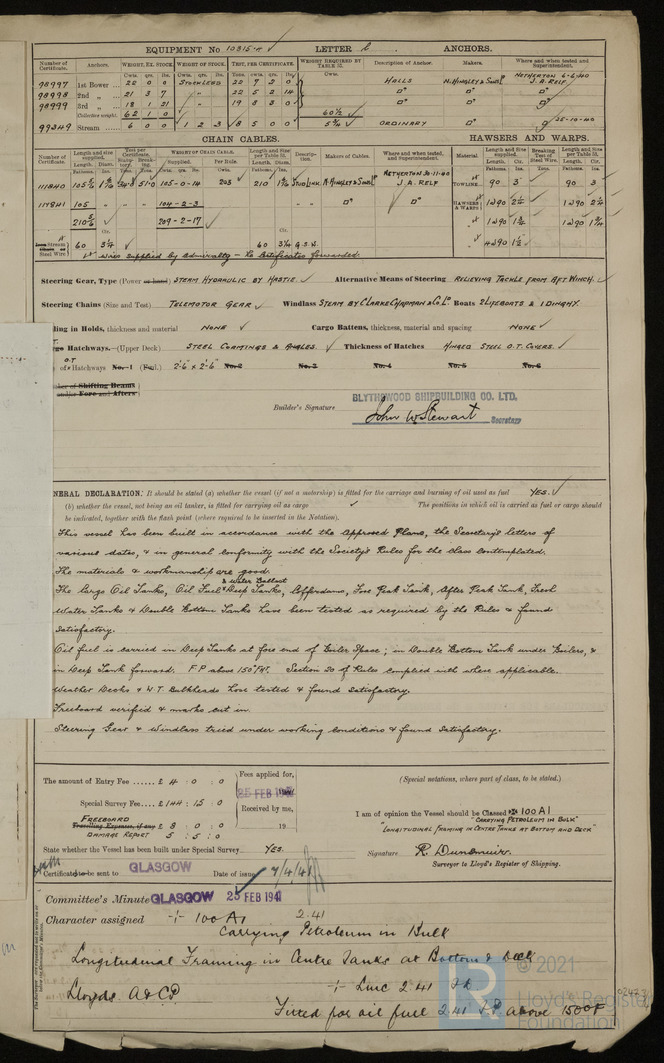 EQUIPMENT No 10315-R LETTER ANCHORS.
Number of Certificate. Anchors. WEIGHT, EX. STOCK WEIGHT OF STOCK. TEST, PER CERTIFICATE. WEIGHT REQUIRED BY TABLE 53. Description of Anchor. Makers. Where and when tested and Superintendent.
Cwts. qrs. lbs.
78997 1st Bower 22 0 0 STOCKLESS 22 7 2 0 HALLS N. HINGLEY & SONS LD NETHERTON 6-6-40
78998 2nd 21 3 7 22 5 2 14 Do Do J.A. RELF
78999 3rd 18 1 21 19 8 3 0 Do Do
Collective weight. 62 1 0 60½
99349 Stream 6 0 0 1 2 3 8 5 0 0 ORDINARY Do 25-10-40
CHAIN CABLES. HAWSERS AND WARPS.
Number of Certificate. Length and size supplied. Test per Certificate. WEIGHT OF CHAIN CABLE. Length and Size per Table 53. Description. Makers of Cables. Where and when tested, and Superintendent. Material Length and Size supplied. Breaking Test of Steel Wire. Length and Size per Table 53.
Fathoms. Diam. Supplied. Per Rule. Length. Diam. Length. Cir. Tons. Length. Cir.
111840 105-0-14 203 210 STUD LINK N. HINGLEY & SONS LD NETHERTON 30-11-40 J.A. RELF TOWLINE 90 3 90 3
111841 105 104-2-3 Do Do HAWSERS & WARPS 1 @ 90 2¼ 1 @ 90 2¼
209-2-17 1 @ 90 1¾ 1 @ 90 1¾
Steel Wire 60 3¼ 60 3¼ G.S.W. 4 @ 90 1½
Wires supplied by Admiralty - No Certificates forwarded.
Steering Gear, Type (Power or hand) STEAM HYDRAULIC BY HASTIE. Alternative Means of Steering RELIEVING TACKLE FROM AFT WINCH.
Steering Chains (Size and Test) TELEMOTOR GEAR Windlass STEAM BY CLARKE CHAPMAN & Co. LD Boats 2 LIFEBOATS & 1 DINGHY.
ling in Holds, thickness and material NONE Cargo Battens, thickness, material and spacing NONE
Hatchways.—(Upper Deck) STEEL COAMINGS & ANGLES. Thickness of Hatches HINGED STEEL O.T. COVERS.
of O.T. Hatchways No. 1 (Fwd.) 2'-6" x 2'-6" No. 2 No. 3 No. 4 No. 5 No. 6
ber of Shifting Beams
and/or Fore and Afters
Builder's Signature BLYTHSWOOD SHIPBUILDING CO. LTD.
John W Stewart Secretary
NERAL DECLARATION. It should be stated (a) whether the vessel (if not a motorship) is fitted for the carriage and burning of oil used as fuel YES.
(b) whether the vessel, not being an oil tanker, is fitted for carrying oil as cargo The positions in which oil is carried as fuel or cargo should
be indicated, together with the flash point (where required to be inserted in the Notation).
This vessel has been built in accordance with the Approved Plans, the Secretary's letters of
various dates, & in general conformity with the Society's Rules for the class contemplated.
The materials & workmanship are good.
The Cargo Oil Tanks, Oil Fuel & Water Ballast Deep Tanks, Cofferdams, Fore Peak Tank, After Peak Tank, Fresh
Water Tanks & Double Bottom Tanks have been tested as required by the Rules & found
satisfactory.
Oil fuel is carried in Deep Tanks at fore end of Boiler Space; in Double Bottom Tank under Boilers, &
in Deep Tank forward. F.P above 150°Fht. Section 20 of Rules complied with where applicable.
Weather Decks & W.T. Bulkheads Hose tested & found satisfactory.
Freeboard verified & marks cut in.
Steering Gear & Windlass tried under working conditions & found satisfactory.
The amount of Entry Fee ...... £ 4 : 0 : 0 Fees applied for, (Special notations, where part of class, to be stated.)
25 FEB 1941
Special Survey Fee.... £ 144 : 15 : 0 Received by me, I am of opinion the Vessel should be Classed ✠ 100 A1
FREEBOARD "CARRYING PETROLEUM IN BULK"
Travelling Expenses, if any £ 8 : 0 : 0 19 "LONGITUDINAL FRAMING IN CENTRE TANKS AT BOTTOM AND DECK"
DAMAGE REPORT 5 : 5 : 0
State whether the Vessel has been built under Special Survey YES. Signature R. Dunsmuir.
Surveyor to Lloyd's Register of Shipping.
Certificate to be sent to GLASGOW Date of issue 7/4/41
Committee's Minute GLASGOW 25 FEB 1941
Character assigned + 100 A1 2.41
Carrying Petroleum in Bulk
Longitudinal Framing in Centre Tanks at Bottom & Deck
Lloyds A & CP + LMC 2.41
Fitted for oil fuel 2.41 F.P. above 150°F
© 2021
Lloyd's Register
Foundation